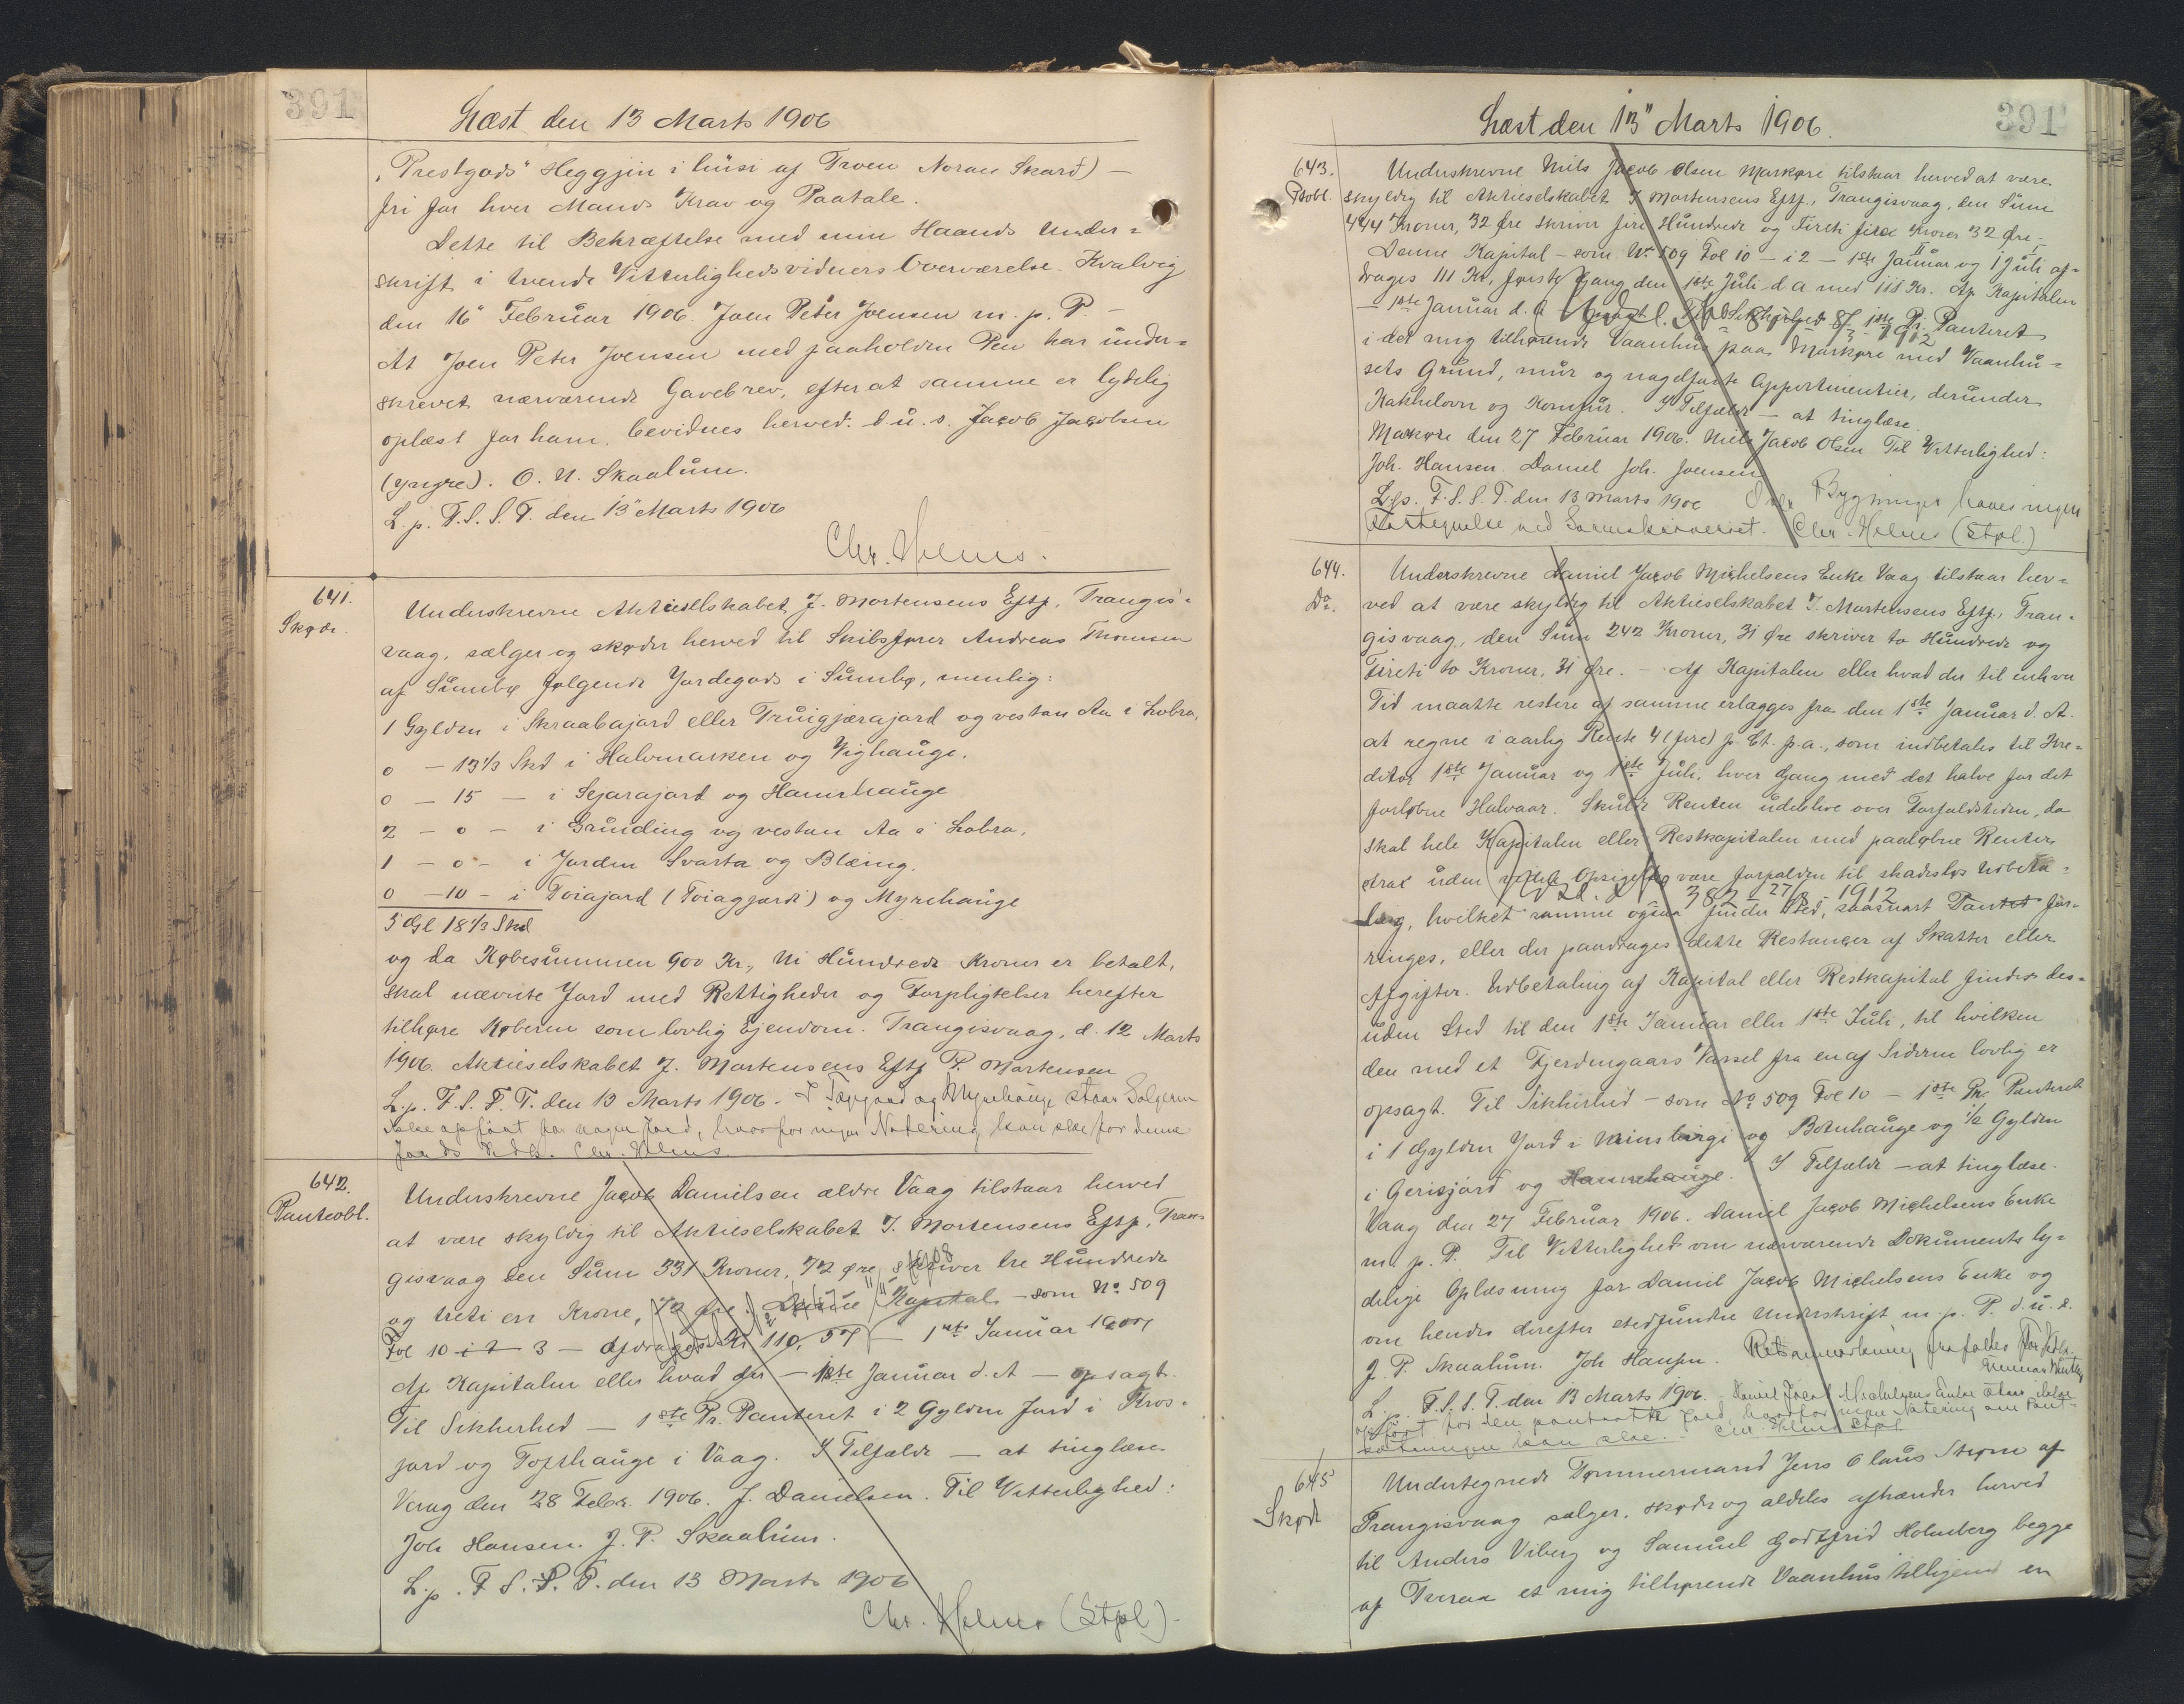 391
Læst den 13 Marts 1906
„Prestgods" Heggjin i húsi af Troen Noran Skard) —
fri for hver Mands Krav og Paatale.
Dette til Bekræftelse med min Haands Under=
skrift i tvende Vitterlighedsvidners Overværelse. Kvalvig
den 16" Februar 1906. Joen Peter Joensen m. p. P. —
At Joen Peter Joensen med paaholden Pen har under=
skrevet nærværende Gavebrev, efter at samme er lydelig
oplæst for ham, bevidnes herved. d. u. s. Jacob Jacobsen
(yngre). O. N. Skaalum.
L. p. F. S. S. T. den 13" Marts 1906
Chr. Holms.
641.
Skøde.
Underskrevne Aktieselskabet J. Mortensens Eftf. Trangis=
vaag, sælger og skøder herved til Skibsfører Andreas Thomsen
af Sumbø følgende Jordegods i Sumbø, nemlig:
1 Gylden i Skraabajord eller Truigjærajord og vestan Aa i Lobra,
0 — 13 1/3 Skd i Halvmarken og Vighauge.
0 — 15 — i Sejarajord og Hamrhauge
2 — 0 — i Grunding og vestan Aa i Lobra,
1 — 0 — i Jorden Svarta og Blæing.
0 — 10 — i Toiajord (Toiagjærdi) og Myrehauge
5 Gl 18 1/3 Skd
og da Købesummen 900 Kr., Ni Hundrede Kroner er betalt,
skal nævnte Jord med Rettigheder og Forpligtelser herefter
tilhøre Køberen som lovlig Ejendom. Trangisvaag, d. 12 Marts
1906. Aktieselskabet J. Mortensens Eftf P. Mortensen
L. p. F. S. S. T. den 13 Marts 1906. I og Myrehauge staar Sælgeren
ikke opført for nogen Jord, hvorfor ingen Notering kan ske for denne
Jords Vedk. Chr. Holms
642.
Panteobl.
Underskrevne Jacob Danielsen ældre Vaag tilstaar herved
at være skyldig til Aktieselskabet J. Mortensens Eftf. Tran=
gisvaag den Sum 331 Kroner, 72 Øre, skriver tre Hundrede
og treti en Krone, 72 Øre. Denne Kapital — som No 509
Fol 10 i 3 — afdrages Kr 110, 57 — 1ste Januar 1907
Af Kapitalen eller hvad der — 1ste Januar d. A — opsagt.
Til Sikkerhed — 1ste Pr. Panteret i 2 Gylden Jord i Kros=
jord og Tofthauge i Vaag. I Tilfælde — at tinglæse.
Vaag den 28 Febr. 1906. J. Danielsen. Til Vitterlighed:
Joh Hansen. J. P. Skaalum.
L. p. F. S. S. T. den 13 Marts 1906
Chr. Holms (Stpl).
Læst den 13" Marts 1906.
391
643.
Ptobl.
Underskrevne Niels Jacob Olsen Markøre tilstaar herved at være
skyldig til Aktieselskabet J Mortensens Eftf., Trangisvaag, den Sum
444 Kroner, 32 Øre skriver fire Hundrede og Firti fire Kroner 32 Øre.
Denne Kapital — som No 509 Fol 10 — i 2 — 1ste Januar og 1 Juli af=
drages 111 Kr, første Gang den 1ste Juli d. A med 111 Kr. Af Kapitalen
— 1ste Januar d. A opsagt. Til Sikkerhed — 1ste Pr. Panteret
i det mig tilhørende Vaanhus paa Markøre med Vaanhu=
sets Grund, mur og nagelfaste Appertinentier, derunder
Kakkelovn og Komfur. I Tilfælde — at tinglæse.
Markøre den 27 Februar 1906. Niels Jacob Olsen Til Vitterlighed:
Joh. Hansen. Daniel Joh. Joensen
L. p. F. S. S. T. den 13 Marts 1906 Over Bygninger haves ingen
Fortegnelse ved Sorenskriveriet. Chr. Holms (Stpl.)
644.
Do.
Underskrevne Daniel Jacob Michelsens Enke Vaag tilstaar her=
ved at være skyldig til Aktieselskabet J. Mortensens Eftf., Tran=
gisvaag, den Sum 242 Kroner, 31 Øre skriver to Hundrede og
Fireti to Kroner, 31 Øre. — Af Kapitalen eller hvad der til enhver
Tid maatte restere af samme erlægges fra den 1ste Januar d. A.
at regne i aarlig Rente 4 (fire) p. Ct. p. a., som indbetales til Kre=
ditor 1ste Januar og 1ste Juli, hver Gang med det halve for det
forløbne Halvaar. Skulde Renten udeblive over Forfaldstiden, da
skal hele Kapitalen eller Restkapitalen med paaløbne Renter
strax uden videre Opsigelse være forfalden til skadesløs Udbeta=
382 27/8 1912
ling, hvilket samme ogsaa finder Sted, saasnart Pantet for=
ringes, eller der paadrages dette Restancer af Skatter eller
Afgifter. Udbetaling af Kapital eller Restkapital finder des=
uden Sted til den 1ste Januar eller 1ste Juli, til hvilken
den med et Fjerdingaars Varsel fra en af Siderne lovlig er
opsagt. Til Sikkerhed — som No 509 Fol 10 — 1ste Pr. Panteret
i 1 Gylden Jord i og Botnhauge og 1/2 Gylden
i Gerisjord og Hamrehauge. I Tilfælde — at tinglæse.
Vaag den 27 Februar 1906. Daniel Jacob Michelsens Enke
m. p. P. Til Vitterlighed om nærværende Dokuments ly=
delige Oplæsning for Daniel Jacob Michelsens Enke og
om hendes derefter stedfundne Underskrift m. p. P. d. u. s.
J. P. Skaalum. Joh Hansen. Retsanmærkning frafaldes
L. p. F. S. S. T. den 13 Marts 1906. Daniel Jacob Michelsens Enke staar ikke
opført for den pantsatte Jord, hvorfor ingen Notering om Pant=
sætningen kan ske. Chr. Holms Stpl
645
Skøde
Undertegnede Tømmermand Jens Olaus Strøm af
Trangisvaag sælger, skøder og aldeles afhænder herved
til Anders Viberg og Samuel Godtfrid Holmberg begge
af Tveraa et mig tilhørende Vaanhus tilligemed en